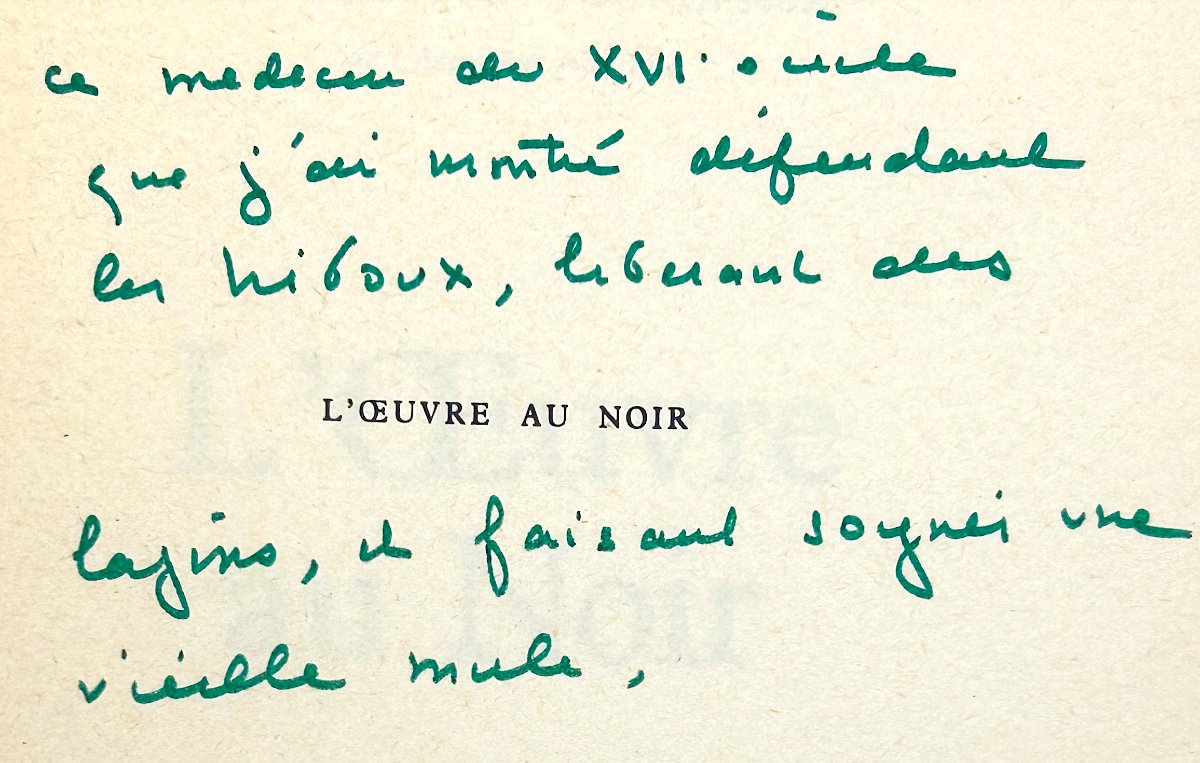 ce medecin du XVIe siècle
que j'ai montré défendant
les hiboux, liberant des
L'ŒUVRE AU NOIR
lapins, et faisant soigner une
vieille mule,